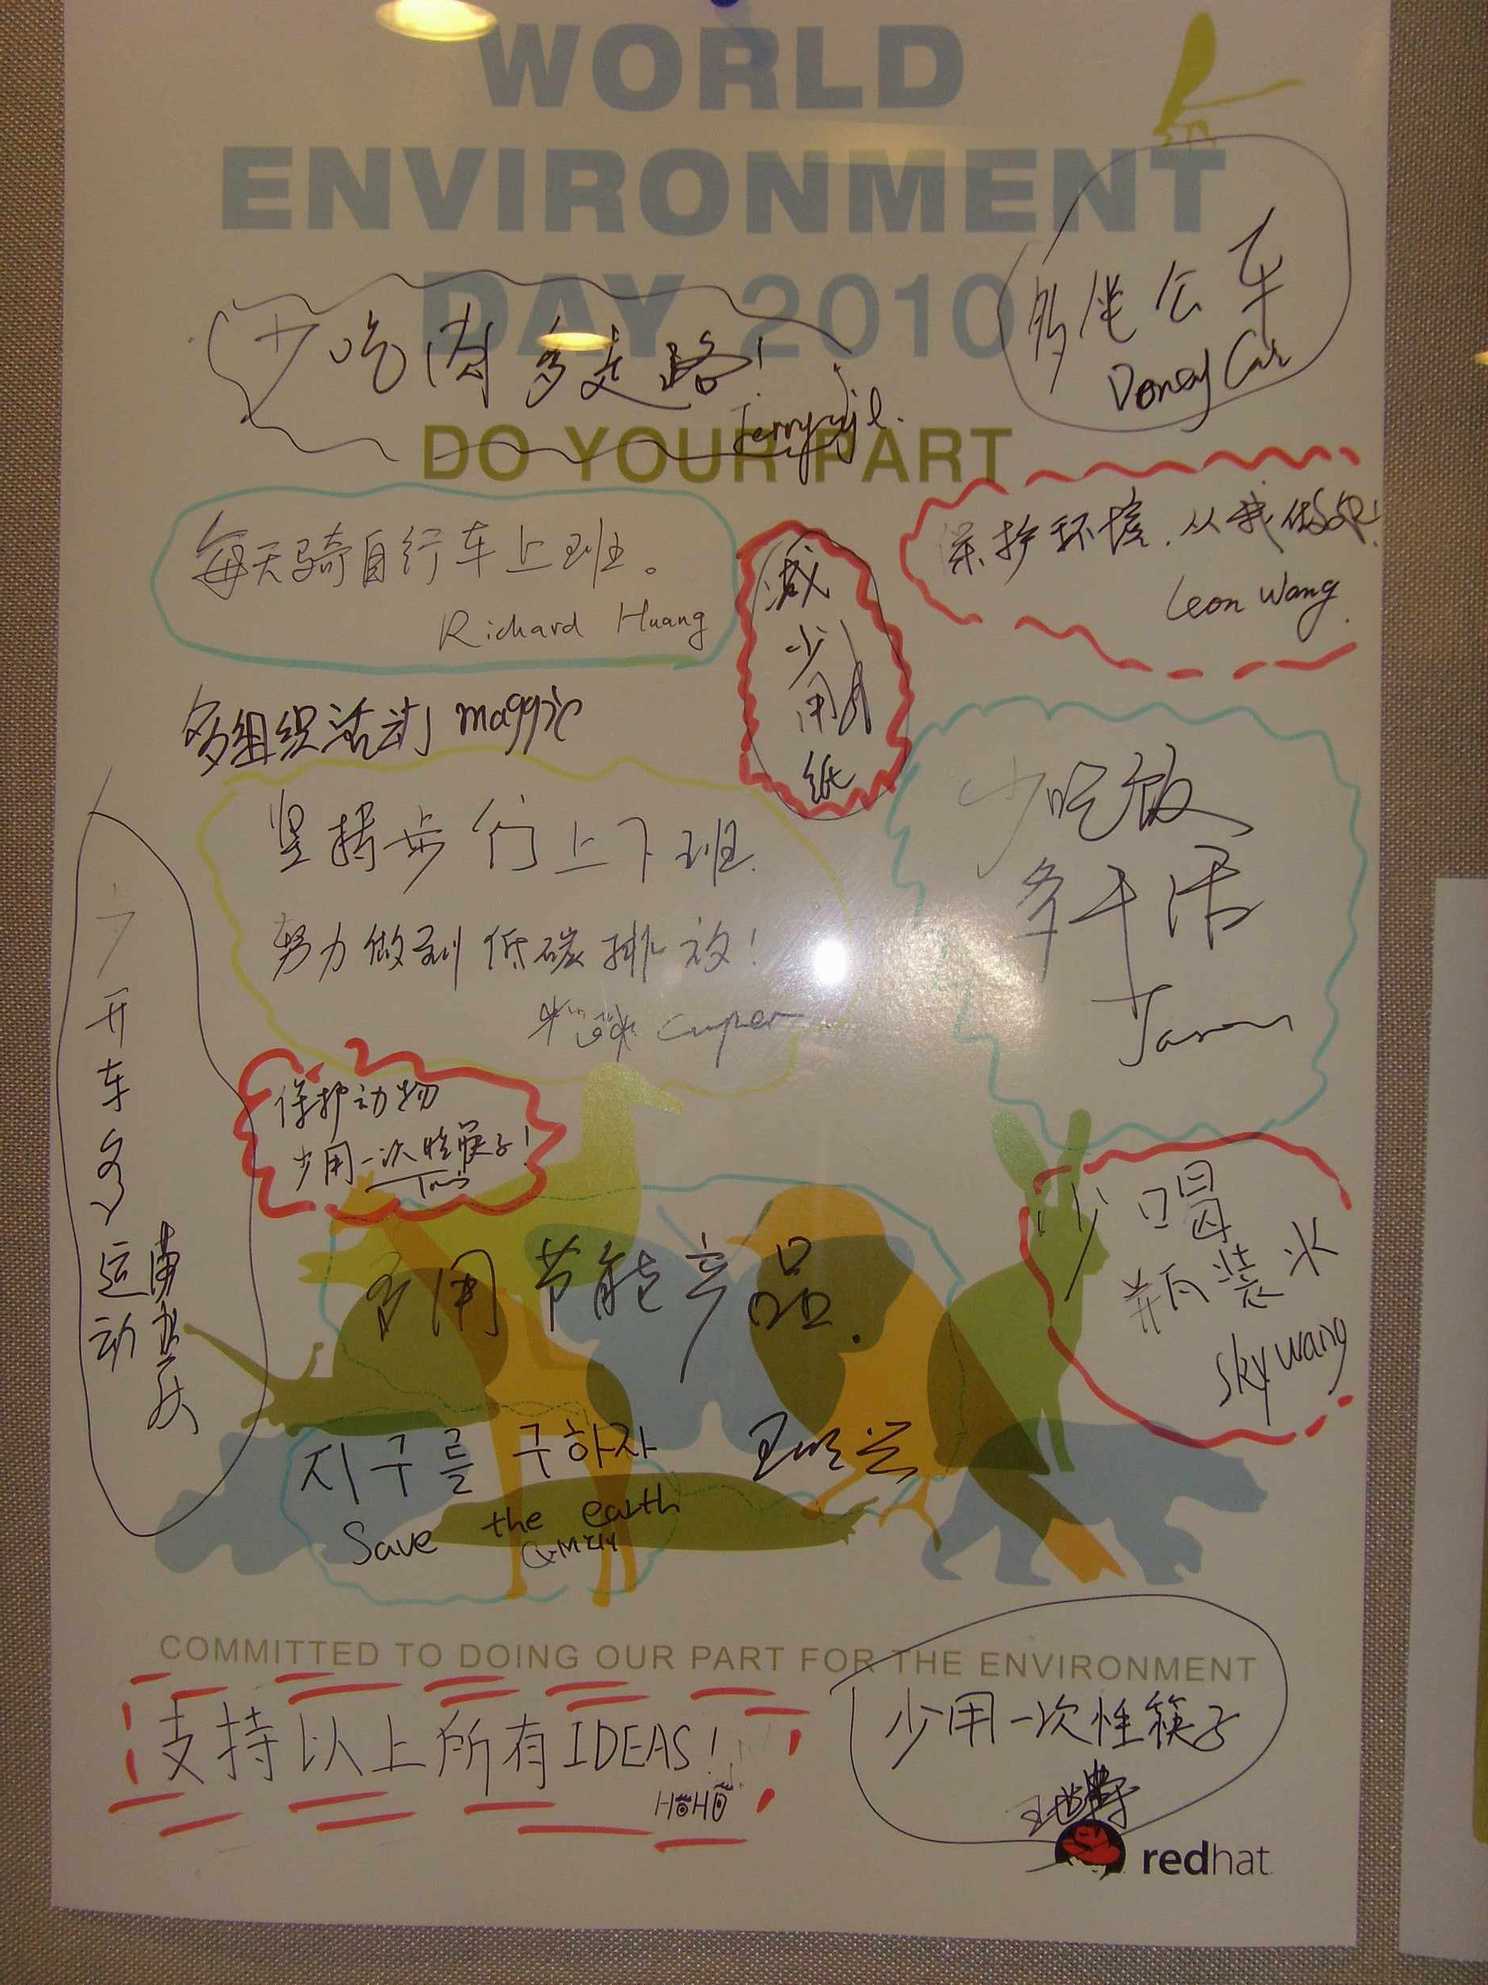 WORLD
ENVIRONMENT
DAY 2010
多坐公车
少吃肉多走路!
DO YOUR PART
每天骑自行车上班。
Richard Huang
减
少
用
纸
保护环境,从我做起!
Leon Wang.
多组织活动 maggie
坚持步行上下班
努力做到低碳排放!
少吃饭
多干活
Jason
少
开
车
多
运
动
保护动物
少用一次性筷子!
多用节能产品.
少喝
瓶装水
Sky wang
지구를 구하자
Save the earth
COMMITTED TO DOING OUR PART FOR THE ENVIRONMENT
支持以上所有IDEAS!
HOHO
少用一次性筷子
redhat